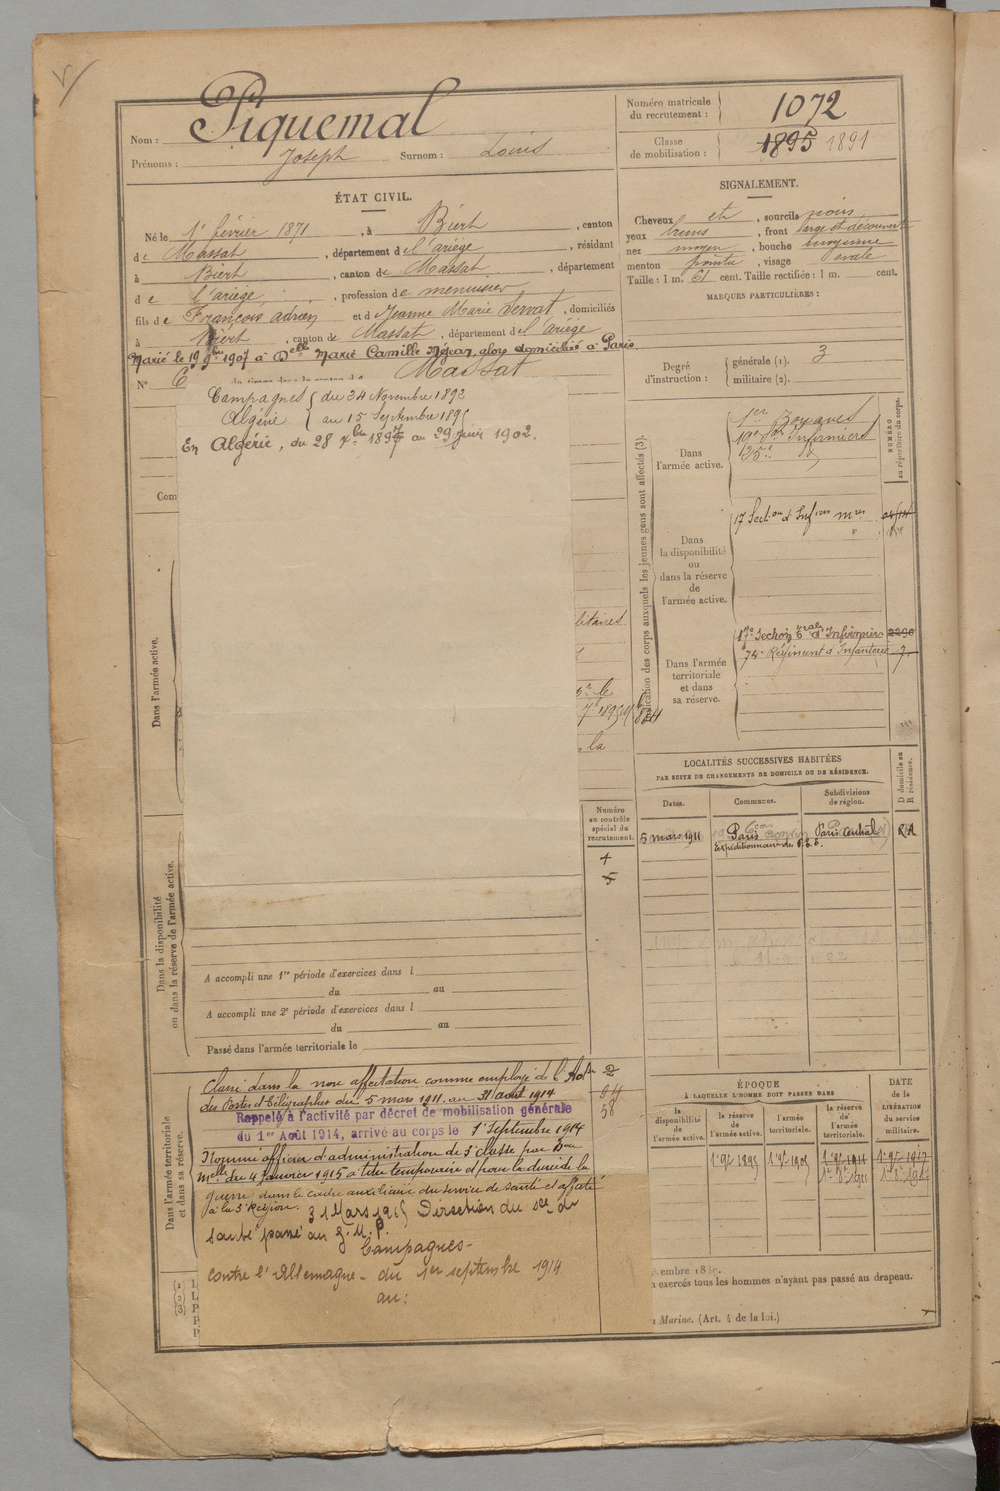 Piquemal
Nom :
Prénoms : Joseph Surnom : Louis
Numéro matricule du recrutement : 1072
Classe de mobilisation : 1895 1891
ÉTAT CIVIL.
Né le 1er février 1871, à Biert, canton
de Massat, département de l'ariège, résidant
à Biert, canton de Massat, département
de l'ariège, profession de menuisier
fils de François adrien et de Jeanne Marie Servat, domiciliés
à Biert, canton de Massat, département de l'ariège
Marié le 19 9bre 1907 à Delle Marie Camille Méjean, alors domiciliée à Paris
N° 6 Massat
SIGNALEMENT.
Cheveux et, sourcils noirs
yeux bruns, front large et découvert
nez moyen, bouche moyenne
menton pointu, visage ovale
Taille : 1 m. 61 cent. Taille rectifiée : 1 m. cent.
MARQUES PARTICULIÈRES :
Degré d'instruction : générale (1). 3
militaire (2).
Campagnes du 24 Novembre 1892
Algérie au 15 Septembre 1895
En Algérie, du 28 7bre 1897 au 29 juin 1902.
Com
litaires
la
Indication des corps auxquels les jeunes gens sont affectés (3).
NUMÉRO au répertoire du corps.
Dans l'armée active.
1er Zouaves
19e Son Infirmiers
25e
Dans la disponibilité ou dans la réserve de l'armée active.
17 Section d'Infiers mres
Dans l'armée territoriale et dans sa réserve.
17e Section Trale d'Infirmiers 2290
74e Régiment d'Infanterie 7.
LOCALITÉS SUCCESSIVES HABITÉES
PAR SUITE DE CHANGEMENTS DE DOMICILE OU DE RÉSIDENCE.
D domicile ou R résidence.
Dates. Communes. Subdivisions de région.
5 mars 1911 Paris Paris Central RA
Expéditionnaire des P.T.T.
Numéro au contrôle spécial du recrutement.
Dans l'armée active.
Dans la disponibilité ou dans la réserve de l'armée active.
A accompli une 1re période d'exercices dans l
du au
A accompli une 2e période d'exercices dans l
du au
Passé dans l'armée territoriale le
Dans l'armée territoriale et dans sa réserve.
Classé dans la non affectation comme employé de l'Adon
des Postes et Télégraphes du 5 mars 1911 au 31 août 1914
Rappelé à l'activité par décret de mobilisation générale
du 1er Août 1914, arrivé au corps le 1er Septembre 1914
Nommé officier d'administration de 3e classe par Don
Melle du 4 Janvier 1915 à titre temporaire et pour la durée de la
guerre dans le cadre auxiliaire du service de santé et affecté
à la 3e Région. 31 Mars 1915 Direction du sce de
santé passé au G.M.P.
Campagnes-
contre l'Allemagne - du 1er septembre 1914
au :
84
58
ÉPOQUE
À LAQUELLE L'HOMME DOIT PASSER DANS
la disponibilité de l'armée active. la réserve de l'armée active. l'armée territoriale. la réserve de l'armée territoriale.
DATE de la LIBÉRATION du service militaire.
1er 9bre 1895 1er 9bre 1905 1er 9bre 1911 1er 9bre 1917
embre 18
exercés tous les hommes n'ayant pas passé au drapeau.
Marine. (Art. 4 de la loi.)